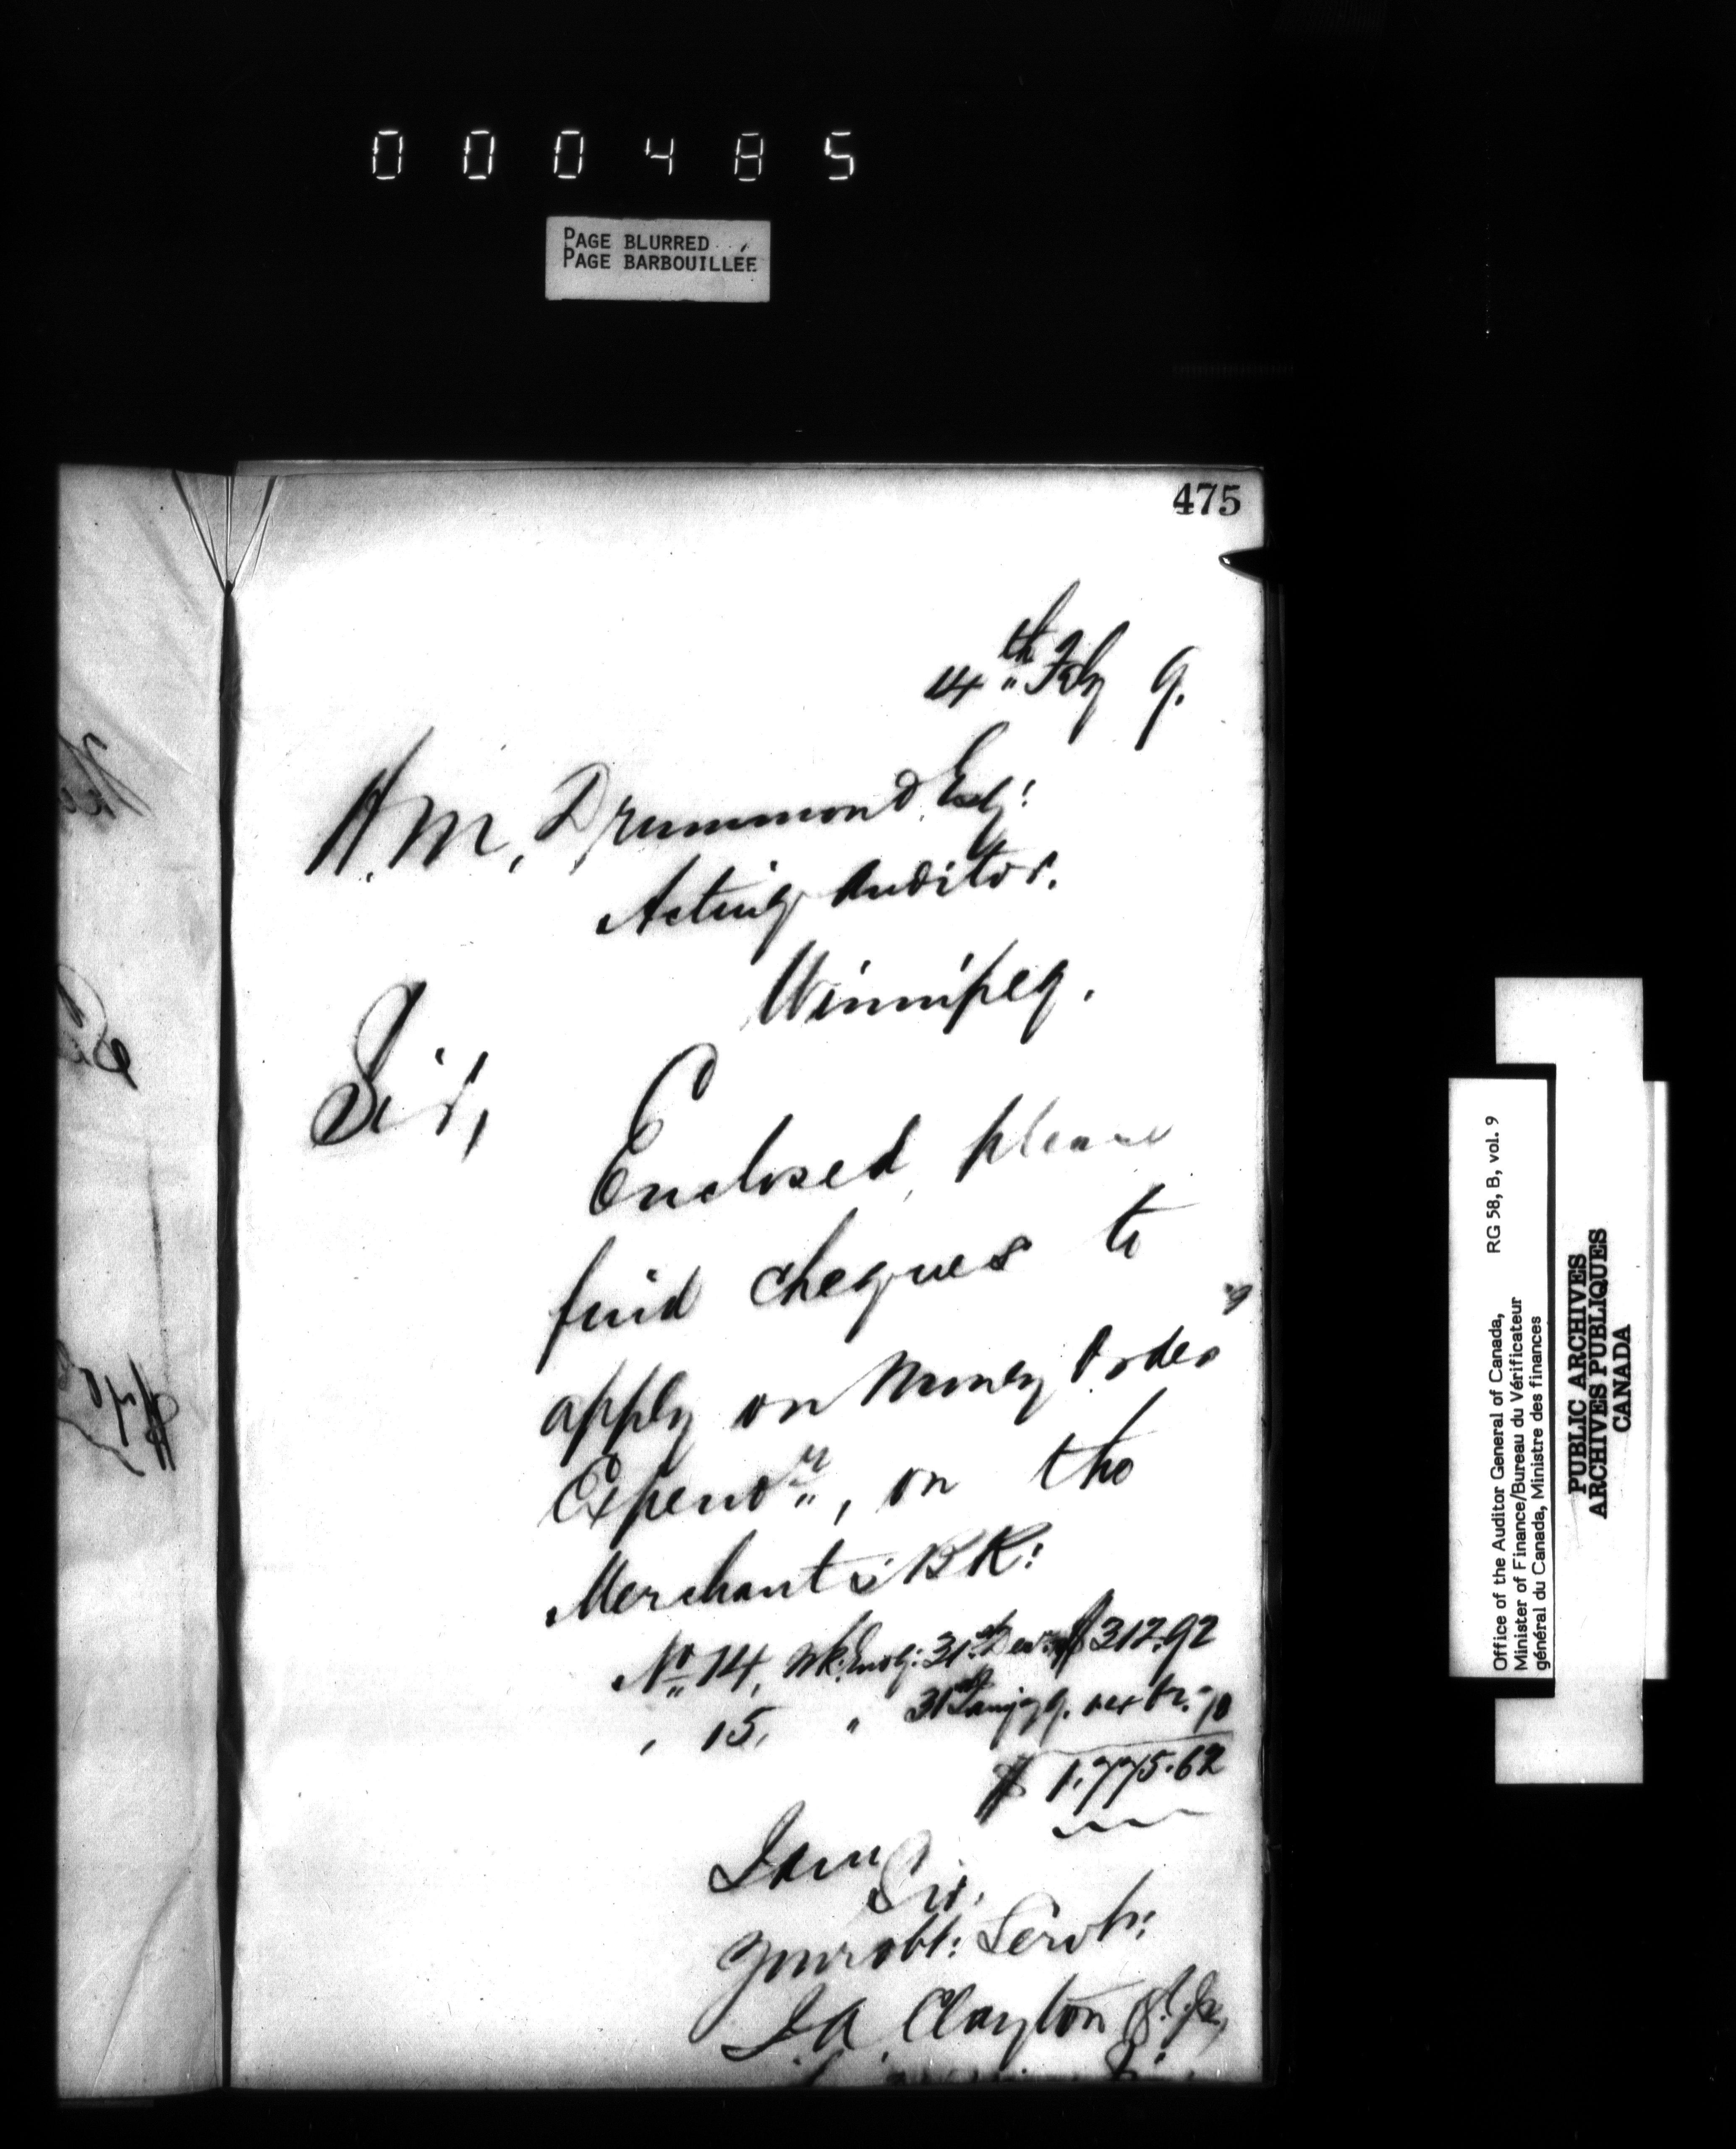 000485
PAGE BLURRED
PAGE BARBOUILLÉE
475
14th Feby 9.
H. M. Drummond Esq:
Acting Auditor.
Winnipeg.
Sir,
Enclosed please
find cheques to
apply on Money Order
Expendre, on the
Merchants BK:
No 14, Wk: Endg: 31st Decr $312.92
" 15, " 31st Jany 9.
$1,775.62
I am
Sir,
Your obt: Servt:
J A Clayton
Office of the Auditor General of Canada, RG 58, B, vol. 9
Minister of Finance/Bureau du Vérificateur
général du Canada, Ministre des finances
PUBLIC ARCHIVES
ARCHIVES PUBLIQUES
CANADA